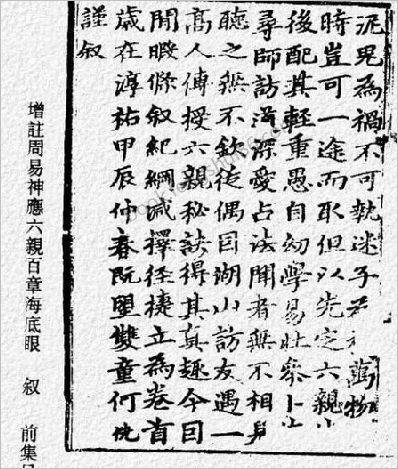 泥鬼為禍不可執迷子萬物
時豈可一途而取但以先定六親
後配其輕重愚自幼學易壯參卜
尋師訪道深愛占法聞者無不相
聽之無不欽從偶因湖山訪友遇一
高人傳授六親秘訣得其真趣今因
閒暇條叙紀綱減擇徑捷立為卷首
歲在淳祐甲辰仲春阮雙童何侁
謹叙
增註周易神應六親百章海底眼 叙 前集